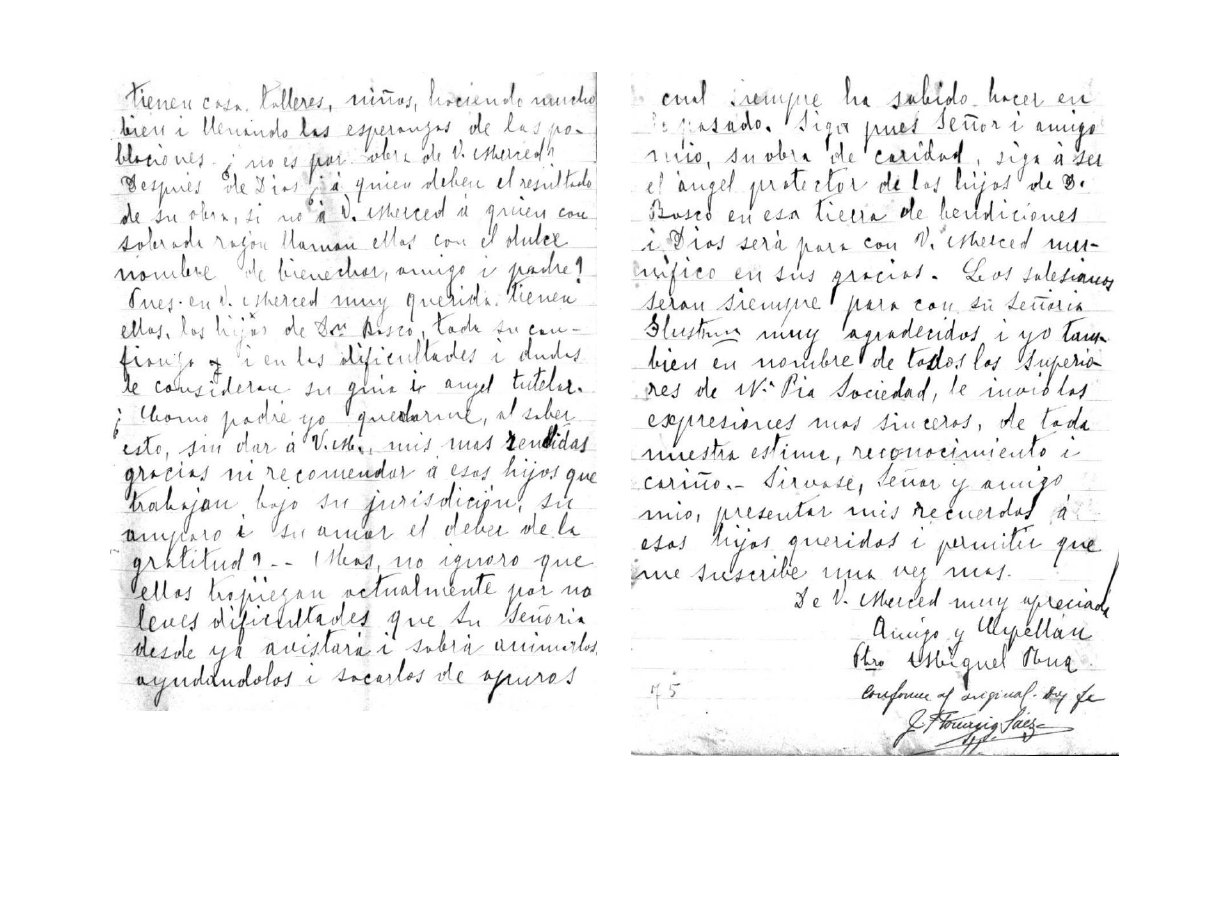 tienen casa, talleres, niños, haciendo mucho
bien i llenando las esperanzas de las po-
blaciones. ¿ no es por obra de V. Merced?
Después de Dios ¿ á quien deben el resultado
de su obra, si no á V. Merced á quien con
sobrada razon llaman ellos con el dulce
nombre de bienechor, amigo i padre?
Pues en V. Merced muy querida tienen
ellos, los hijos de Dn Bosco, toda su con-
fianza i en las dificultades i dudas
le consideran su guia i angel tutelar.
¿ Como podré yo quedarme, al saber
esto, sin dar á V. M., mis mas rendidas
gracias ni recomendar á esos hijos que
trabajan bajo su jurisdición, su
amparo i su amor el deber de la
gratitud? -- Mas, no ignoro que
ellos tropiezan actualmente por no
leves dificultades que Su Señoria
desde ya avistará i sabrá animarlos,
ayudandolos i sacarlos de apuros
cual siempre ha sabido hacer en
lo pasado. Siga pues Señor i amigo
mio, su obra de caridad, siga á ser
el ángel protector de los hijos de D.
Bosco en esa tierra de bendiciones
i Dios será para con V. Merced mu-
nifico en sus gracias. Los salesianos
seran siempre para con su Señoria
Ilustrma muy agradecidos i yo tam-
bien en nombre de todos los Superio-
res de N.a Pia Sociedad, le invio las
expresiones mas sinceras, de toda
nuestra estima, reconocimiento i
cariño.- Sirvase, Señor y amigo
mio, presentar mis recuerdos á
esos hijos queridos i permitir que
me suscribe una vez mas.
De V. Merced muy apreciada
Amigo y Capellán
Pbro Miguel Rua
Conforme al original. Doy fe
75
J. Saez